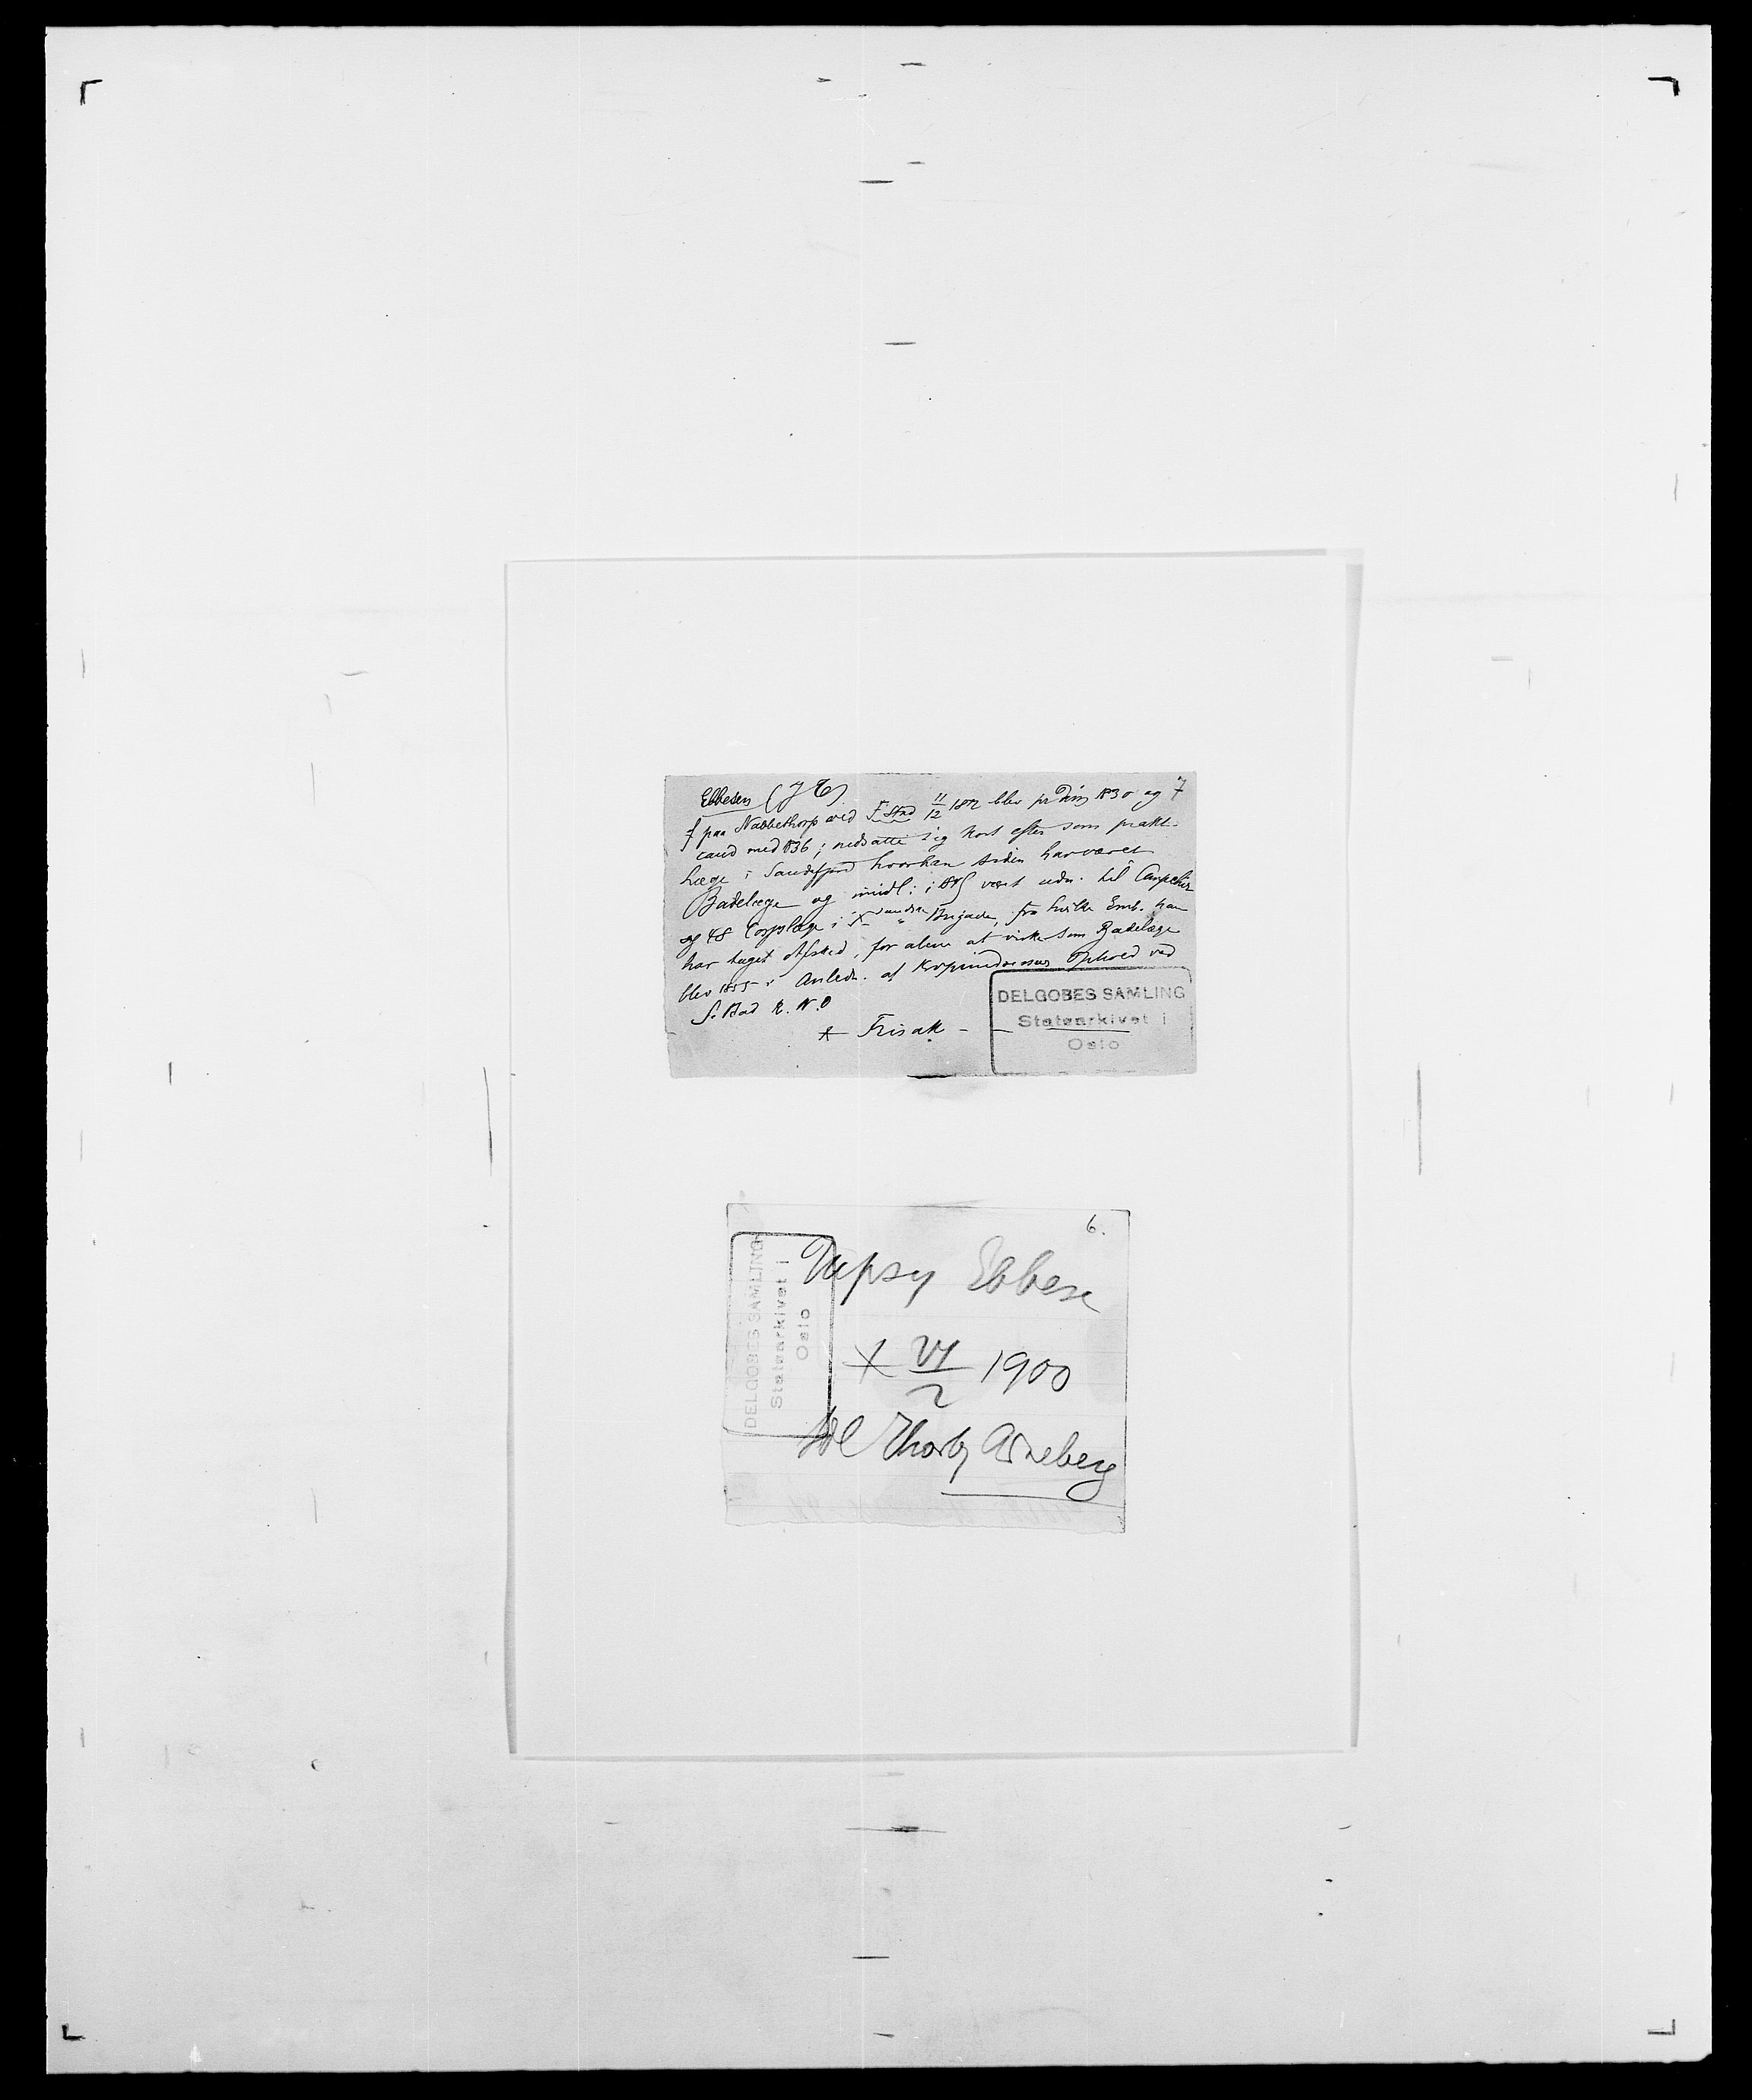 Ebbesen (J E) 7
f paa Nabbethorp ved F. Stad 11/12 1812 blev pr Dim 1830 og
cand med 1836; nedsatte sig kort efter som prakt.
læge i Sandefjord hvor han siden har været
Badelæge og imidl: i været udn. til Compchir
og 48 Corpslæge i Brigade, fra hvilke Emb. han
har taget Afsked, for alene at virke som Badelæge
blev 1855 i Anledn. af Ophold ved
S. Bad R. N. O
⚹ Frisak -
DELGOBES SAMLING
Statsarkivet i
Oslo
6.
Ebbese
⚹ /2 1900
Thorbj Arneberg
DELGOBES SAMLING
Statsarkivet i
Oslo